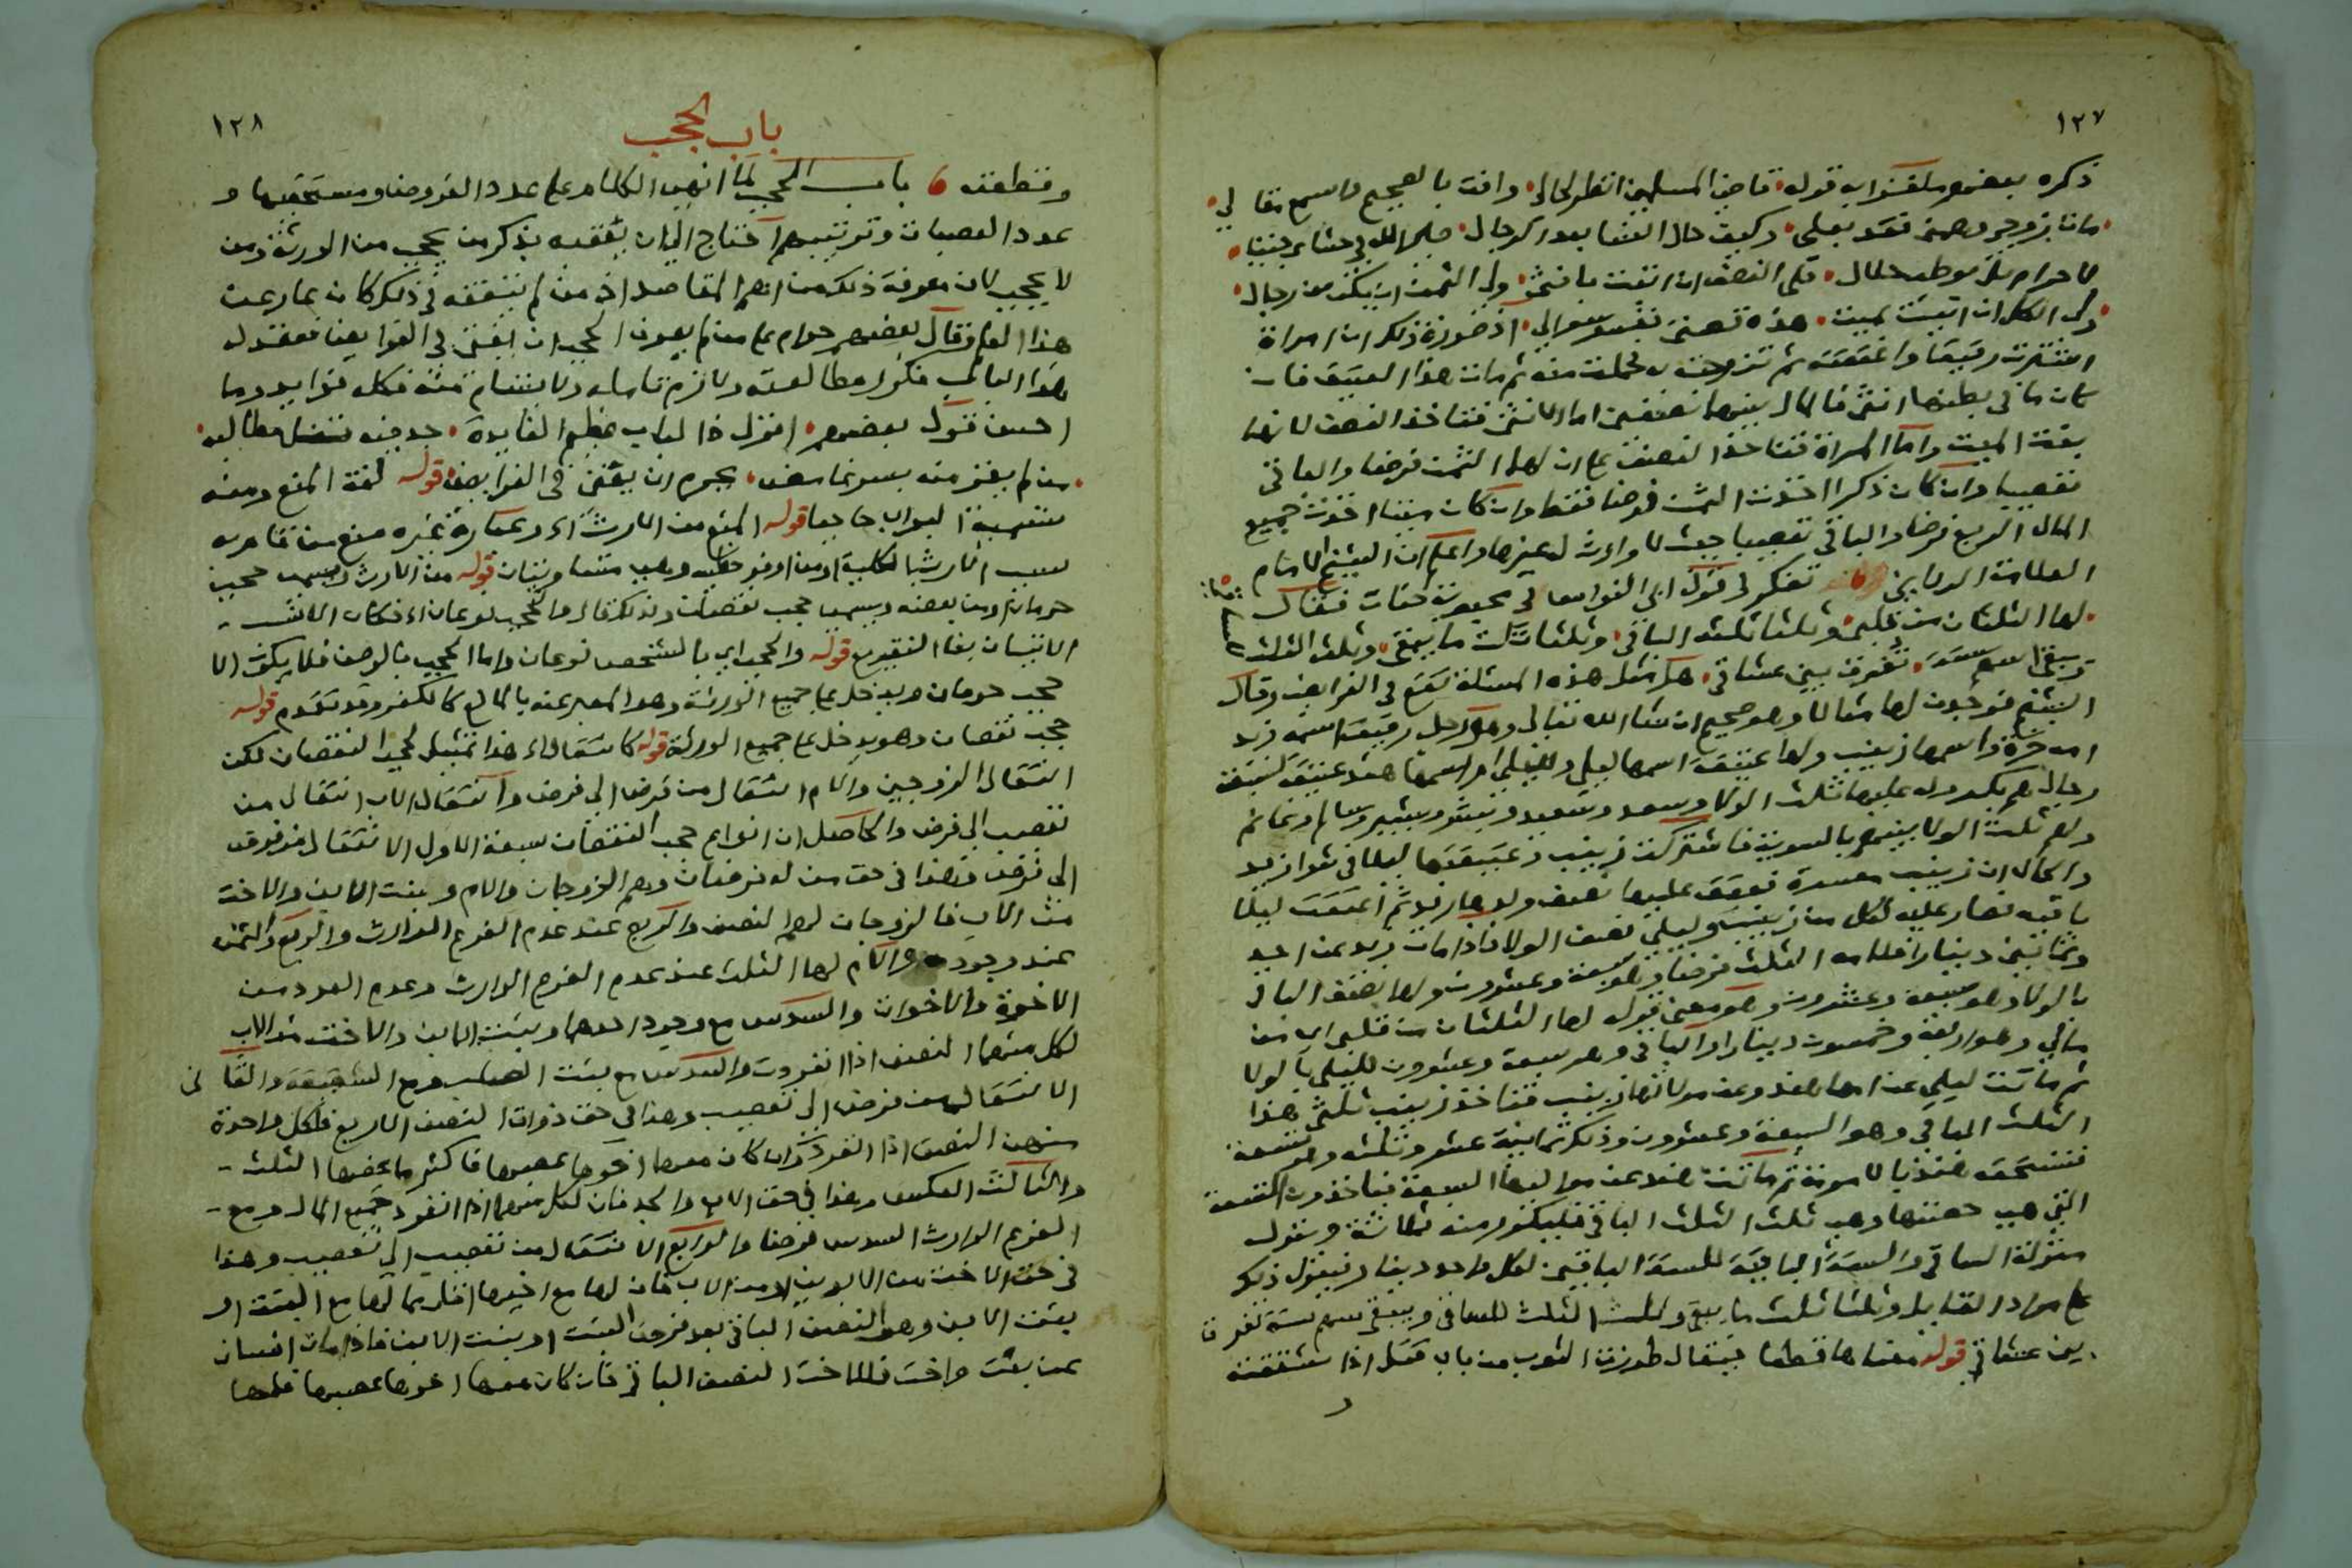 ١٢٧
ذكره بعضهم ملغزا به قوله قاضي المسلمين انظر لحالي وافت بالصحيح واسمع مقالي
مات زوجي وهمني فقد بعلي وكيف حال النسا بعد الرجال صير الله في حشاي جنينا
لا حرام بل بوطء حلال فلي النصف ان اتيت بانثى ولي الثمن ان يكن من رجال
ولي الكل ان اتيت بميت هذه قصتي ففسر سوالي اذ صورة ذلك ان امراة
اشترت رقيقا واعتقته ثم تزوجت به فحملت منه ثم مات هذا العتيق فان
كان ما في بطنها انثى فالمال بينهما نصفين اما الانثى فتاخذ النصف لانها
بنت الميت واما المراة فتاخذ النصف على ان لها الثمن فرضا والباقي
تعصيبا وان كان ذكرا اخذت الثمن فرضا فقط وان كان ميتا اخذت جميع
المال الربع فرضا والباقي تعصيبا حيث لا وارث له غيرها واعلم ان الشيخ الامام
العلامة تفكر في قول ابي النواس في محبوبة فقال
لها الثلثان من قلبي وثلثا ثلثه الباقي وثلثا ثلث ما يبقى وثلث الثلث للساقي
ويبقى اسهم ستة تفرق بين عشاقي هل مثل هذه المسئلة تقع في الفرايض وقال
الشيخ فوجدت لها مثالا وهو صحيح ان شا الله تعالى وهو رجل رقيق اسمه زيد
امه حرة واسمها زينب ولها عتيقة اسمها ليلى ولليلى ام اسمها هند عتيقة لستة
رجال هم بكر وله عليها ثلث الولا وسعد وسعيد وبشر وبشير وسالم وغانم
ولهم ثلث الولا بينهم بالسوية فاشتركت زينب وعتيقتها ليلى في شرا زيد
والحال ان زينب معسرة فعتق عليها نصف ولدها زيد ثم اعتقت ليلى
باقيه فصار عليه لكل من زينب وليلى نصف الولا فاذا مات زيد عن احد
وثمانين دينارا فلامه الثلث فرضا وهو سبعة وعشرون ولها نصف الباقي
بالولا وهو سبعة وعشرون وهو معنى قوله لها الثلثان من قلبي اي من
مالي وهو اربعة وخمسون دينارا والباقي وهو سبعة وعشرون لليلى بالولا
ثم ماتت ليلى عن امها هند وعن مولاتها زينب فتاخذ زينب ثلثي هذا
الثلث الباقي وهو السبعة وعشرون وذلك ثمانية عشر وثلثه وهو تسعة
تستحقه هند بالامومة ثم ماتت هند عن مواليها السبعة فياخذون التسعة
التي هي حصتها وهي ثلث الثلث الباقي فلبكر منه ثلاثة وتنزل
منزلة الساقي والستة الباقية للستة الباقين لكل واحد دينار فينزل ذلك
على مراد القايل وثلثا ثلث ما يبقى وثلث الثلث للساقي ويبقى اسهم ستة تفرق
بين عشاقي قوله معناها قطعا فيقال طرزت الثوب من باب قتل اذا شققته
و
١٢٨
باب الحجب
وقطعته باب الحجب لما انهى الكلام على عدد الفروض ومستحقيها و
عدد العصبات وترتيبهم احتاج الى ان يعقبه بذكر من يحجب من الورثة ومن
لا يحجب لان معرفة ذلك من اهم المقاصد اذ من لم يتفقه في ذلك كان بمارعت
هذا العلم وقال بعضهم حرام على من لم يعرف الحجب ان يفتي في الفرايض فعقد له
هذا الباب فكرر مطالعته ولازم تامله ولا تسام منه فكله فوايد وما
احسن قول بعضهم انزل ذا الباب عظيم الفايدة جد فيه مطالبه
من لم يفز منه بسر غامض يحرم ان يفتي في الفرايض قوله لغة المنع ومنه
تسمية البواب حاجبا قوله المنع من الارث اي وعبارة غيره منع من قام به
سبب الارث بالكلية او من اوفر حظيه وهي متساويتان قوله من الارث ويسمى حجب
حرمان ومن بعضه ويسمى حجب نقصان ولذلك قال والحجب نوعان اي فكان الانسب
الاتيان بفا التفريع قوله والحجب اي بالشخص نوعان واما الحجب بالوصف فلا يكون الا
حجب حرمان ويدخل على جميع الورثة وهو المعبر عنه بالمانع كالكفر وقد تقدم قوله
حجب نقصان وهو يدخل على جميع الورثة قوله كانتقال اي هذا تمثيل لحجب النقصان لكن
انتقال الزوجين والام انتقال من فرض الى فرض وانتقال الاب انتقال من
تعصيب الى فرض والحاصل ان انواع حجب النقصان سبعة الاول الانتقال من فرض
الى فرض وهذا في حق من له فرضان وهم الزوجان والام وبنت الابن والاخت
من الاب فالزوجان لهما النصف والربع عند عدم الفرع الوارث والربع والثمن
عند وجوده والام لها الثلث عند عدم الفرع الوارث وعدم العدد من
الاخوة والاخوات والسدس مع وجود احدهما وبنت الابن والاخت من الاب
لكل منهما النصف اذا انفردت والسدس مع بنت الصلب ومع الشقيقة والثاني
الانتقال من فرض الى تعصيب وهذا في حق ذوات النصف الاربع فلكل واحدة
منهن النصف اذا انفردت وان كان معها اخوها عصبها فاكثر ما يخصها الثلث
والثالث العكس وهذا في حق الاب والجد فان لكل منهما اذا انفرد جميع المال ومع
الفرع الوارث السدس فرضا والرابع الانتقال من تعصيب الى تعصيب وهذا
في حق الاخت من الابوين او من الاب فان لها مع اخيها اقل مما لها مع البنت او
بنت الابن وهو النصف الباقي بعد فرض البنت او بنت الابن فاذا مات انسان
عن بنت واخت فللاخت النصف الباقي فان كان معها اخوها عصبها فلها